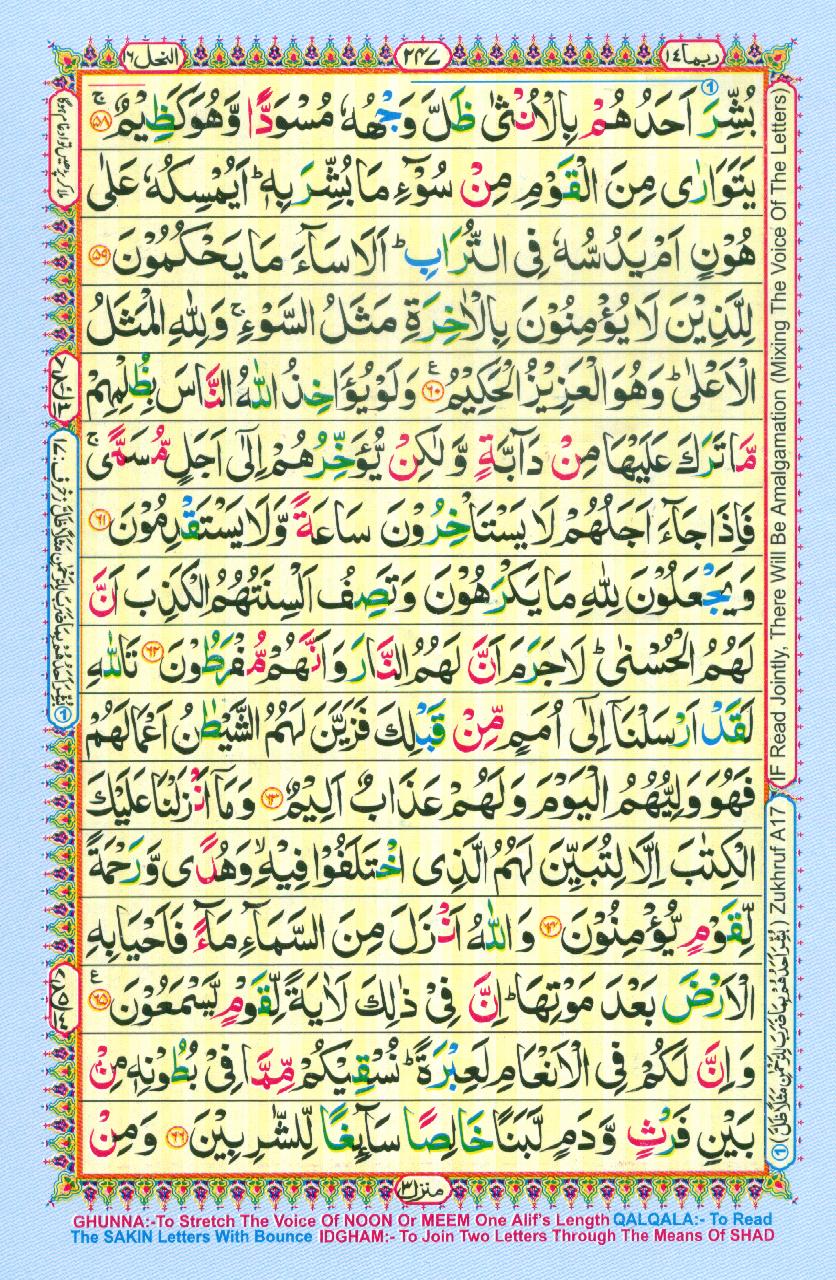 ربما ١٤
٢٤٧
النحل ١٦
بُشِّرَ اَحَدُهُمْ بِالْاُنْثٰى ظَلَّ وَجْهُهٗ مُسْوَدًّا وَّهُوَ كَظِيْمٌ ۚ ﴿٥٨﴾
يَتَوَارٰى مِنَ الْقَوْمِ مِنْ سُوْٓءِ مَا بُشِّرَ بِهٖ ؕ اَيُمْسِكُهٗ عَلٰى
هُوْنٍ اَمْ يَدُسُّهٗ فِى التُّرَابِ ؕ اَلَا سَآءَ مَا يَحْكُمُوْنَ ﴿٥٩﴾
لِلَّذِيْنَ لَا يُؤْمِنُوْنَ بِالْاٰخِرَةِ مَثَلُ السَّوْءِ ۚ وَلِلّٰهِ الْمَثَلُ
الْاَعْلٰى ؕ وَهُوَ الْعَزِيْزُ الْحَكِيْمُ ﴿٦٠﴾ وَلَوْ يُؤَاخِذُ اللّٰهُ النَّاسَ بِظُلْمِهِمْ
مَّا تَرَكَ عَلَيْهَا مِنْ دَآبَّةٍ وَّلٰكِنْ يُّؤَخِّرُهُمْ اِلٰٓى اَجَلٍ مُّسَمًّى ۚ
فَاِذَا جَآءَ اَجَلُهُمْ لَا يَسْتَاْخِرُوْنَ سَاعَةً وَّلَا يَسْتَقْدِمُوْنَ ﴿٦١﴾
وَيَجْعَلُوْنَ لِلّٰهِ مَا يَكْرَهُوْنَ وَتَصِفُ اَلْسِنَتُهُمُ الْكَذِبَ اَنَّ
لَهُمُ الْحُسْنٰى ؕ لَا جَرَمَ اَنَّ لَهُمُ النَّارَ وَاَنَّهُمْ مُّفْرَطُوْنَ ﴿٦٢﴾ تَاللّٰهِ
لَقَدْ اَرْسَلْنَاۤ اِلٰٓى اُمَمٍ مِّنْ قَبْلِكَ فَزَيَّنَ لَهُمُ الشَّيْطٰنُ اَعْمَالَهُمْ
فَهُوَ وَلِيُّهُمُ الْيَوْمَ وَلَهُمْ عَذَابٌ اَلِيْمٌ ﴿٦٣﴾ وَمَاۤ اَنْزَلْنَا عَلَيْكَ
الْكِتٰبَ اِلَّا لِتُبَيِّنَ لَهُمُ الَّذِى اخْتَلَفُوْا فِيْهِ ۙ وَهُدًى وَّرَحْمَةً
لِّقَوْمٍ يُّؤْمِنُوْنَ ﴿٦٤﴾ وَاللّٰهُ اَنْزَلَ مِنَ السَّمَآءِ مَآءً فَاَحْيَا بِهِ
الْاَرْضَ بَعْدَ مَوْتِهَا ؕ اِنَّ فِىْ ذٰلِكَ لَاٰيَةً لِّقَوْمٍ يَّسْمَعُوْنَ ﴿٦٥﴾
وَاِنَّ لَكُمْ فِى الْاَنْعَامِ لَعِبْرَةً ؕ نُسْقِيْكُمْ مِّمَّا فِىْ بُطُوْنِهٖ مِنْۢ
بَيْنِ فَرْثٍ وَّدَمٍ لَّبَنًا خَالِصًا سَآئِغًا لِّلشّٰرِبِيْنَ ﴿٦٦﴾ وَمِنْ
(IF Read Jointly, There Will Be Amalgamation (Mixing The Voice Of The Letters)
① (بُشِّرَ اَحَدُهُمْ بِمَا ضَرَبَ لِلرَّحْمٰنِ مَثَلًا ظَلَّ) Zukhruf A17
منزل ٣
GHUNNA:-To Stretch The Voice Of NOON Or MEEM One Alif's Length QALQALA:- To Read
The SAKIN Letters With Bounce IDGHAM:- To Join Two Letters Through The Means Of SHAD